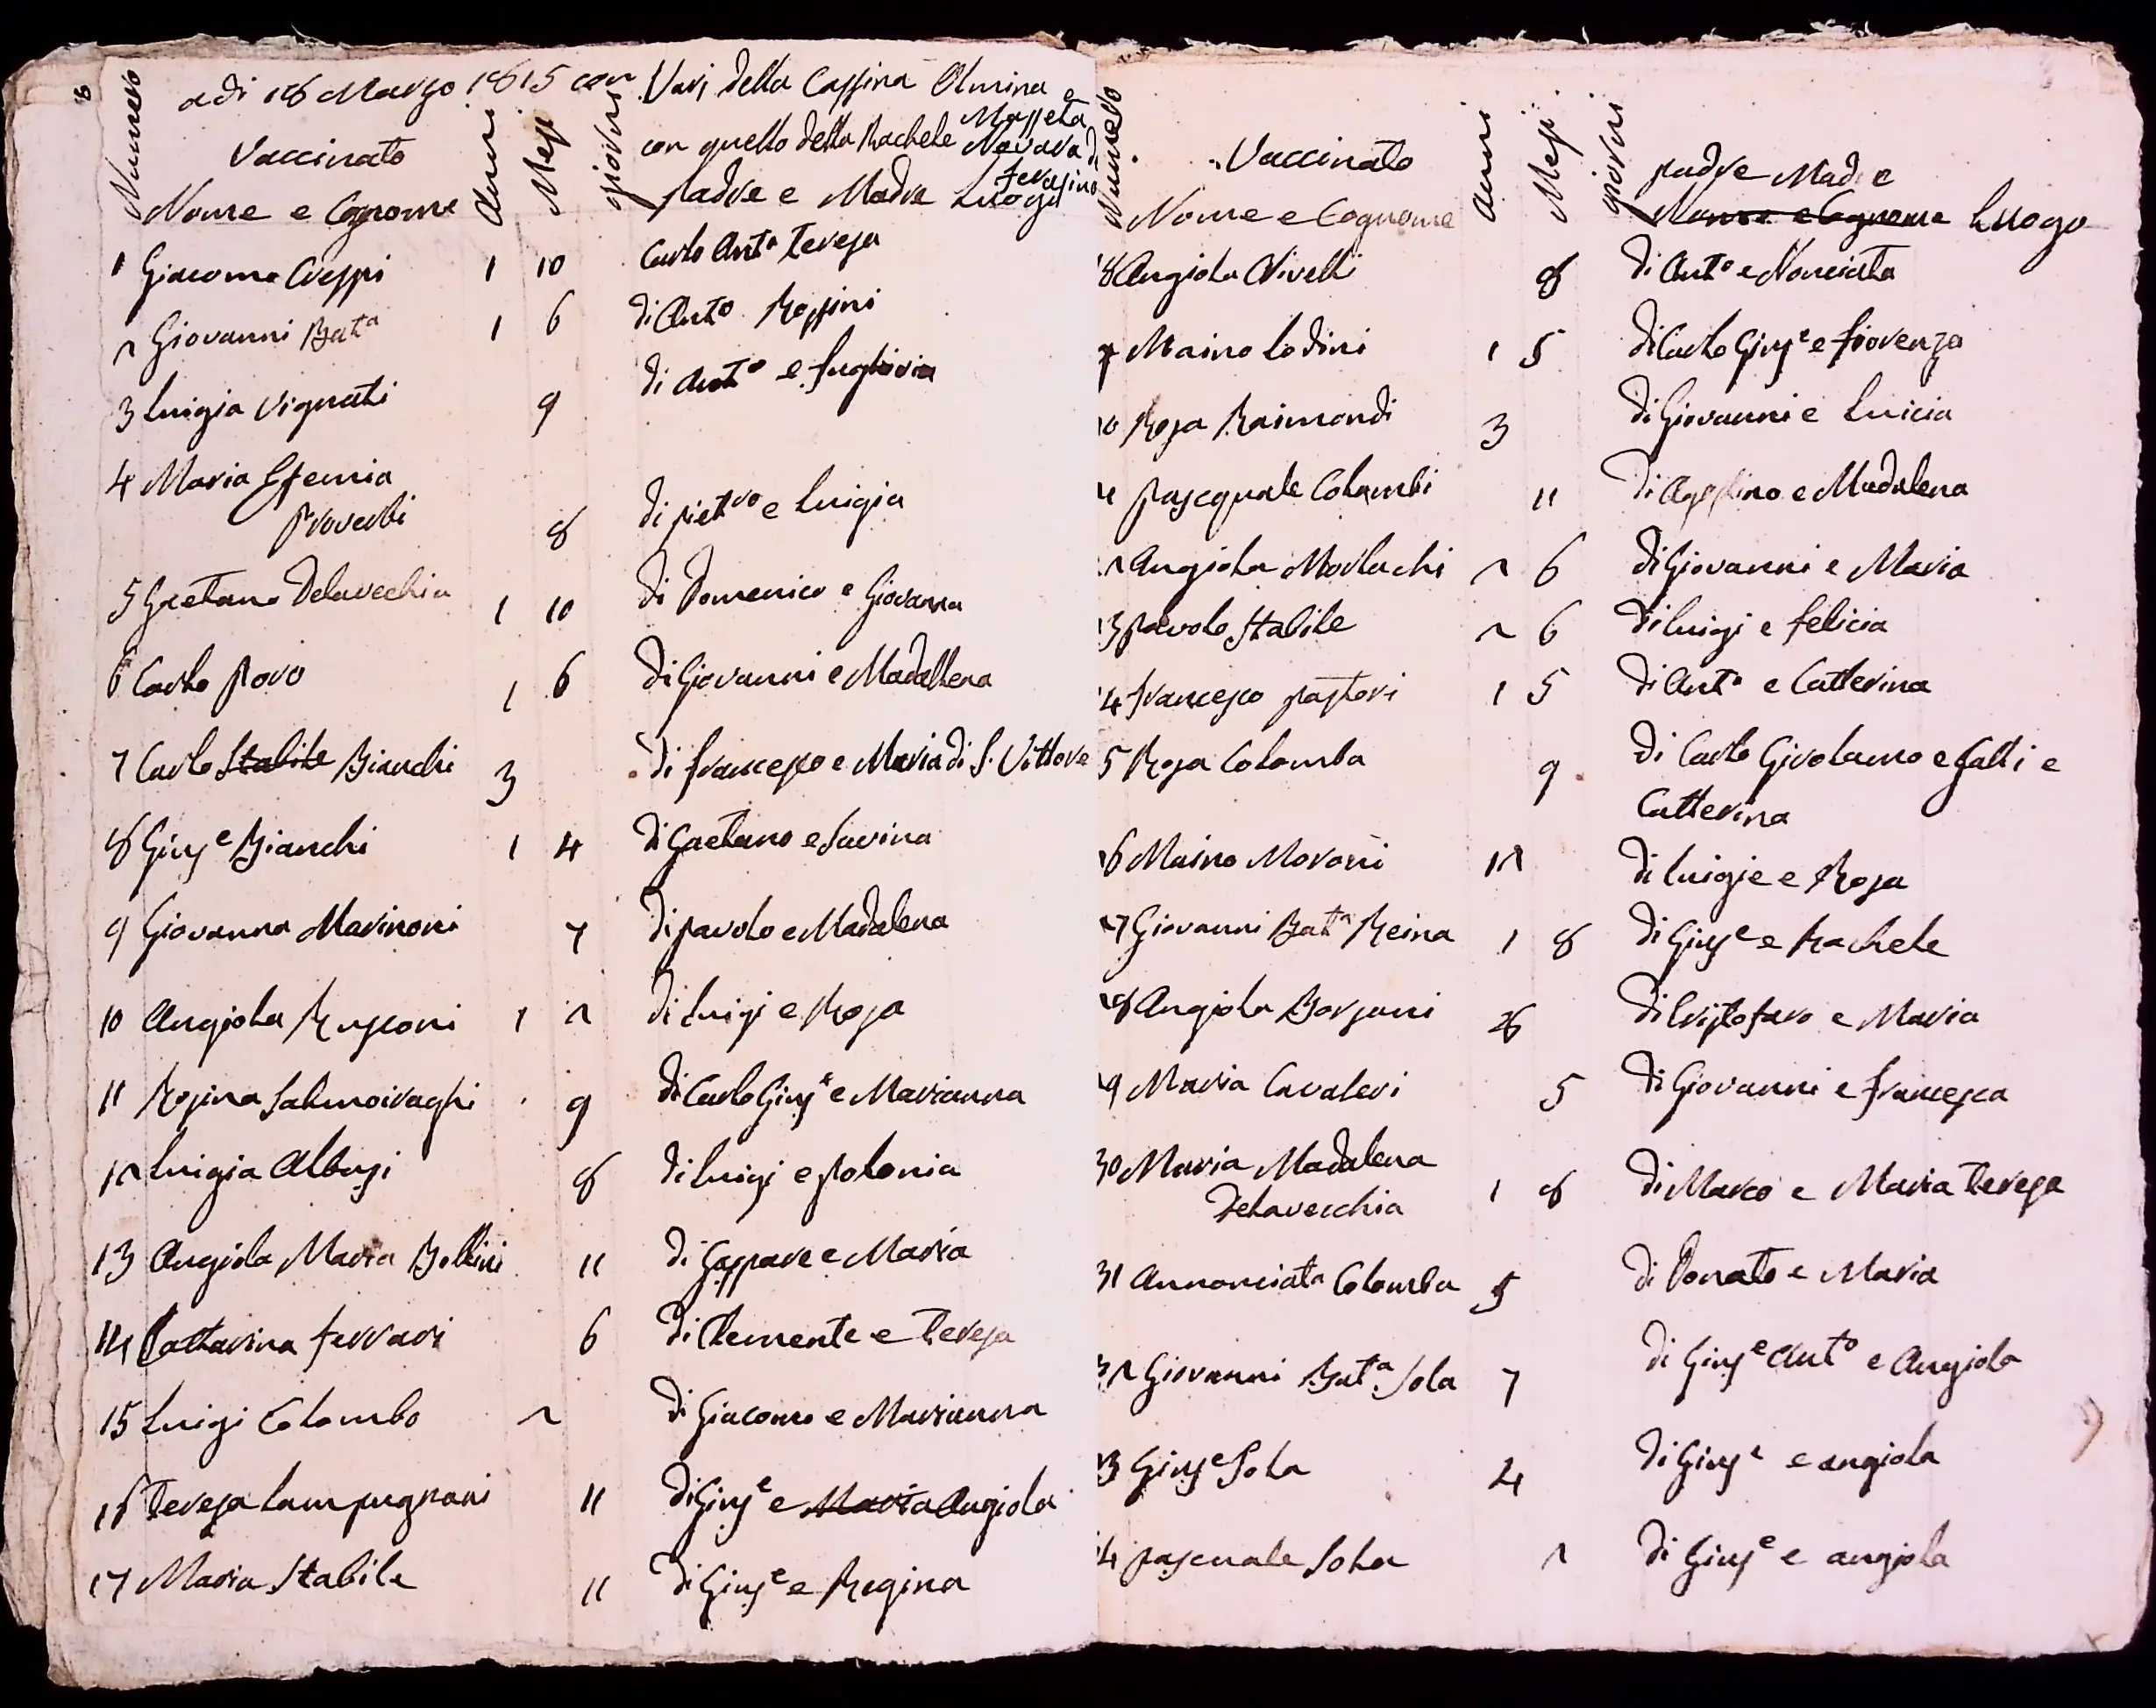 adi 18 Marzo 1815 con Vari della Cassina Olmina e
con quello della Rachele Masseta Novara di
Numero Vaccinato Anni Mesi giorni padre e Madre Luogo
Nome e Cognome
1 Giacomo Crespi 1 10 Carlo Ant.o Teresa
2 Giovanni Bat.a 1 6 di Ant.o Rossini
3 Luigia Vignati 9 di Ant.o e
4 Maria Efemia
Proverbi 8 di pietro e Luigia
5 Gaetano Delavechia 1 10 di Domenico e Giovanna
6 Carlo Poro 1 6 di Giovanni e Madallena
7 Carlo Stabile Bianchi 3 di francesco e Maria di S. Vittore
8 Gius.e Bianchi 1 4 di Gaetano e Savina
9 Giovanna Marinoni 7 di pavolo e Madalena
10 Angiola Rusconi 1 2 di Luigi e Rosa
11 Rosina Salmoiraghi 9 di Carlo Gius.e e Marianna
12 Luigia Albusi 8 di Luigi e Polonia
13 Angiola Maria Bollini 11 di Gaspare e Maria
14 Cattarina ferrari 6 di Clemente e Teresa
15 Luigi Colombo 2 di Giacomo e Marianna
16 Teresa Lampugnani 11 di Gius.e e Maria Angiola
17 Maria Stabile 11 di Gius.e e Regina
Numero Vaccinato Anni Mesi giorni padre Madre
Nome e Cognome Nome e Cognome Luogo
18 Angiola Olivelli 8 di Ant.o e Nonciata
Maino Lodini 1 5 di Carlo Gius.e e fiorenza
20 Rosa Raimondi 3 di Giovanni e Lucia
21 pascquale Colombi 11 di Agostino e Madalena
22 Angiola Morlachi 2 6 di Giovanni e Maria
23 pavolo Stabile 2 6 di Luigi e felicia
24 francesco pastori 1 5 di Ant.o e Catterina
25 Rosa Colomba 9 di Carlo Girolamo e Galli e
Catterina
26 Maino Moroni 12 di Luigie e Rosa
27 Giovanni Bat.a Reina 1 8 di Gius.e e Rachele
28 Angiola Borsani 26 di Cristofaro e Maria
29 Maria Cavaleri 5 di Giovanni e francesca
30 Maria Madalena
Delavecchia 1 8 di Marco e Maria Teresa
31 Annonciata Colomba 5 di Donato e Maria
32 Giovanni Bat.a Sola 7 di Gius.e Ant.o e Angiola
33 Gius.e Sola 4 di Gius.e e angiola
34 pascuale Sola 2 di Gius.e e angiola